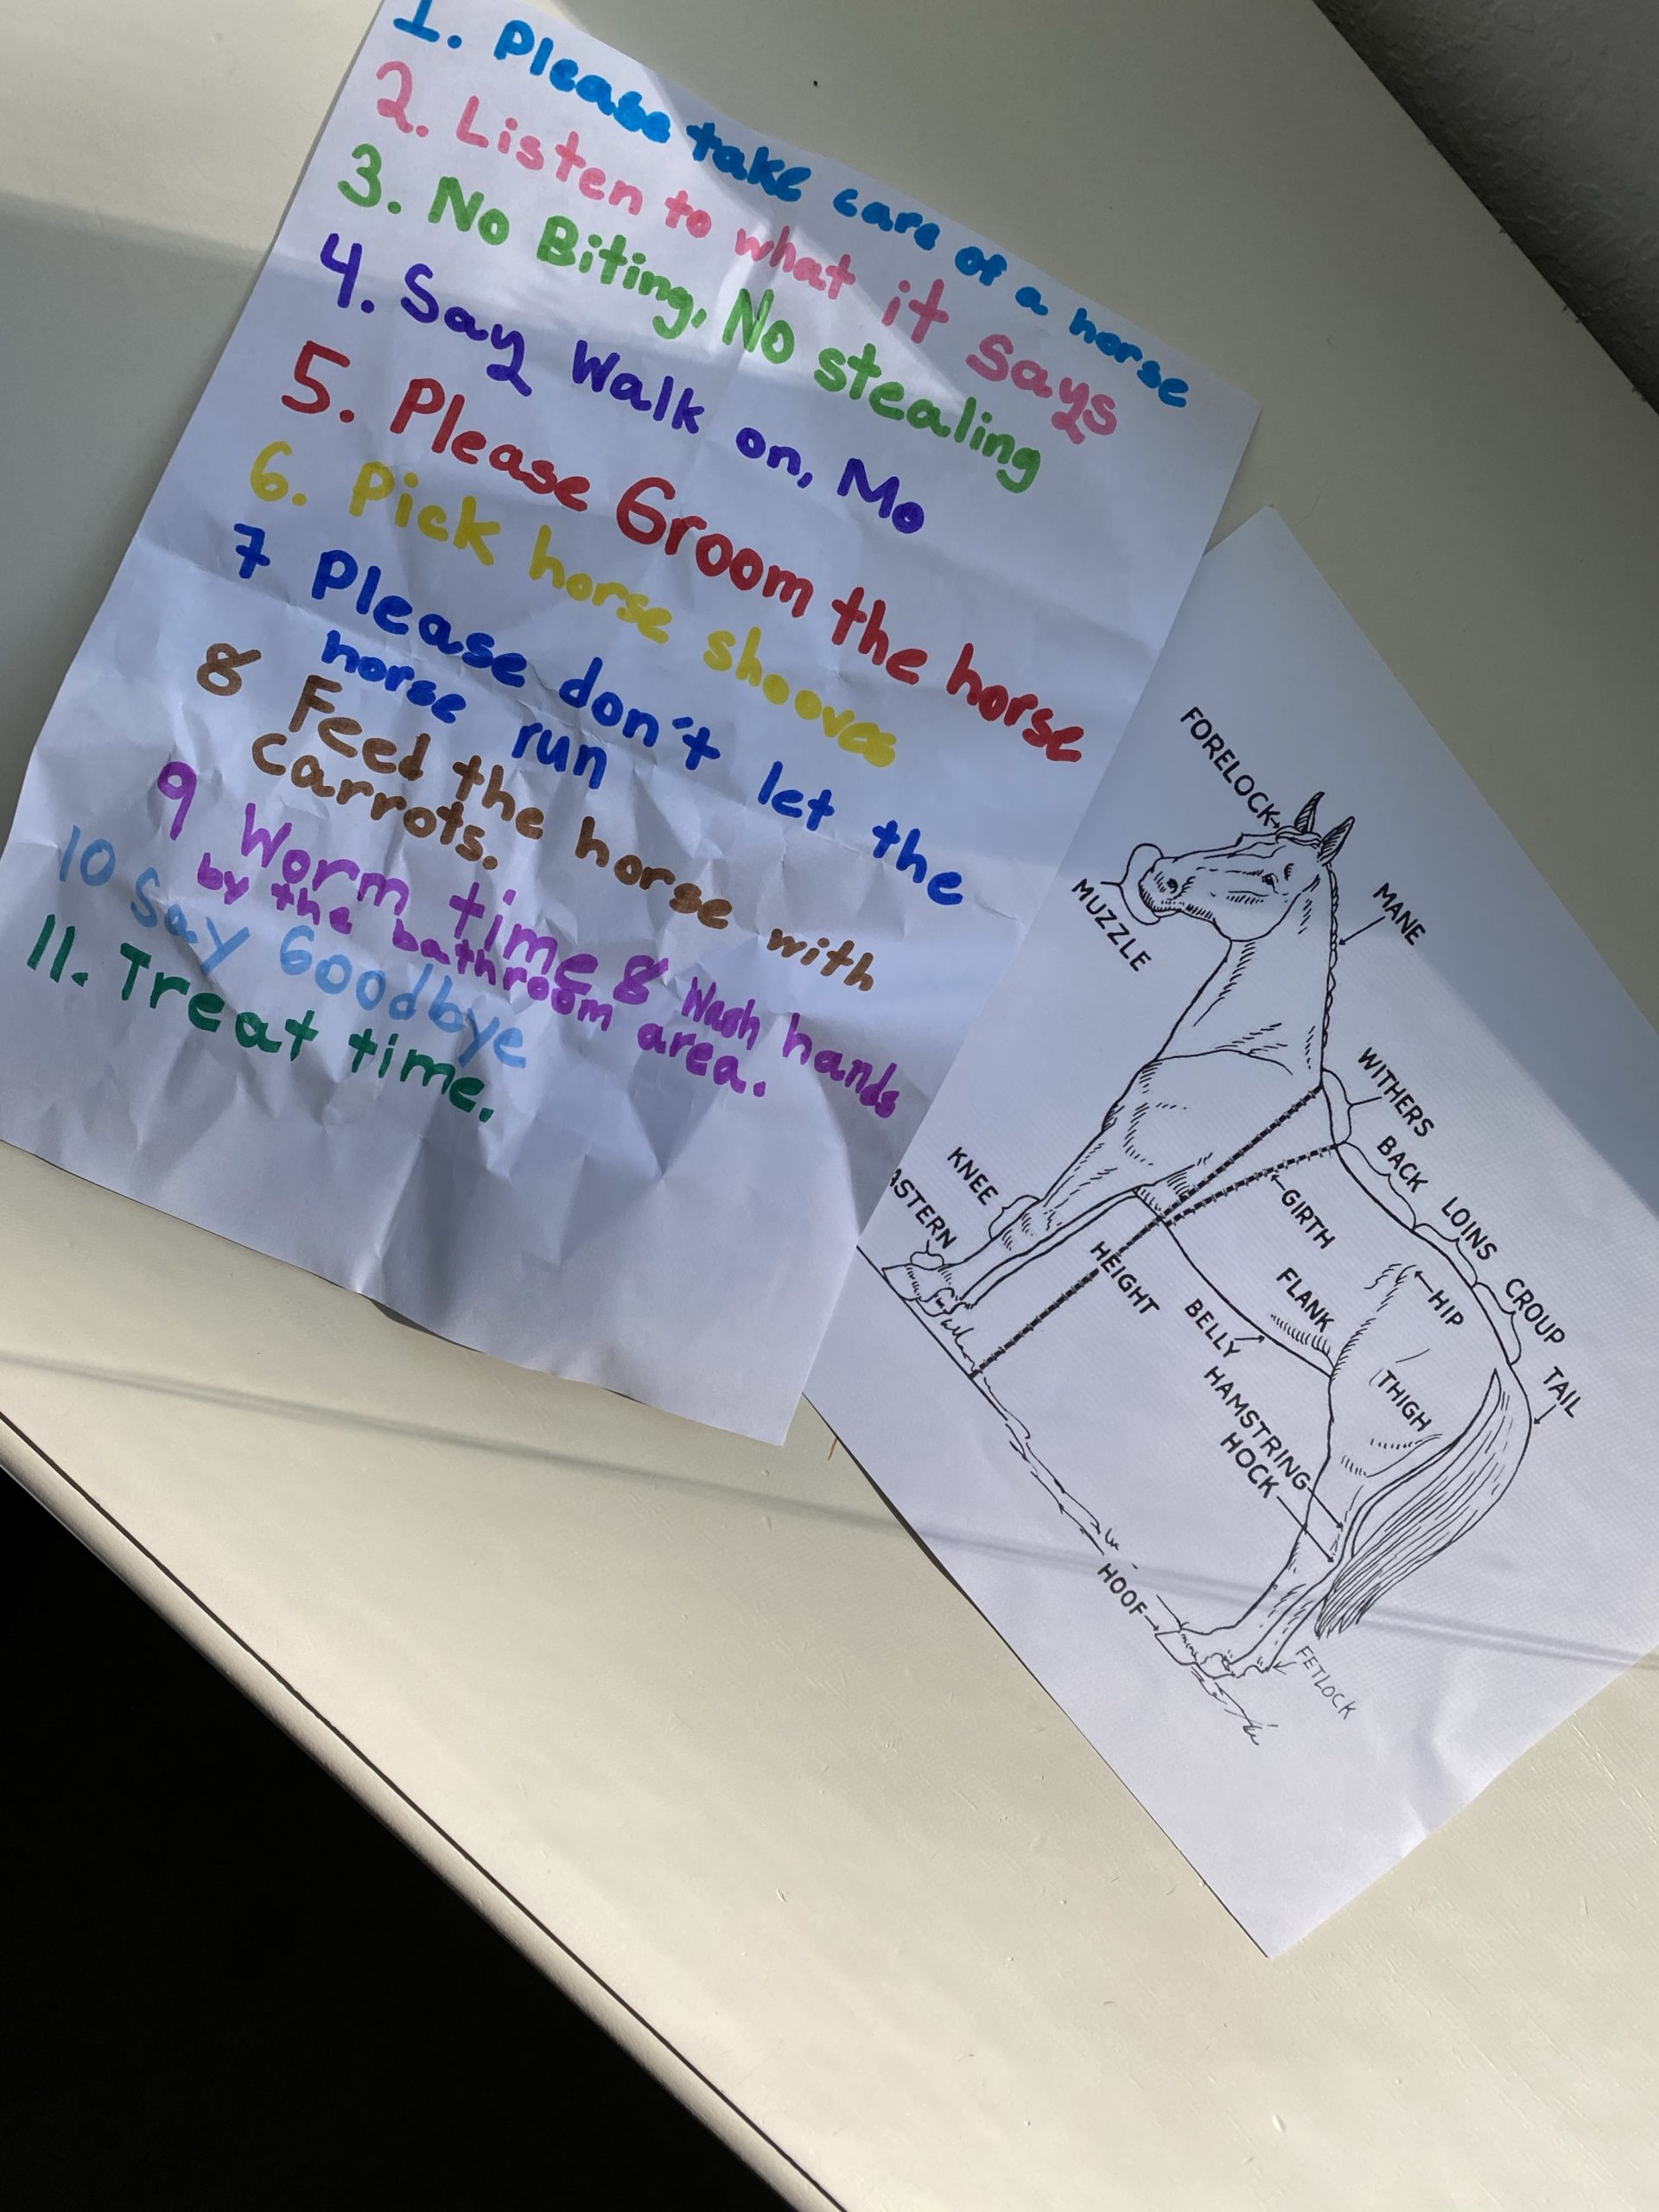 1. Please take care of a horse
2. Listen to what it says
3. No Biting, No stealing
4. Say Walk on, Mo
5. Please Groom the horse
6. Pick horse shooves
7 Please don't let the
horse run
8 Feed the horse with
carrots.
9 Worm time & Wash hands
by the bathroom area.
10 Say Goodbye
11. Treat time.
FORELOCK
MUZZLE
MANE
WITHERS
BACK
LOINS
CROUP
TAIL
KNEE
ASTERN
GIRTH
HEIGHT
FLANK
HIP
BELLY
THIGH
HAMSTRING
HOCK
HOOF
FETLOCK